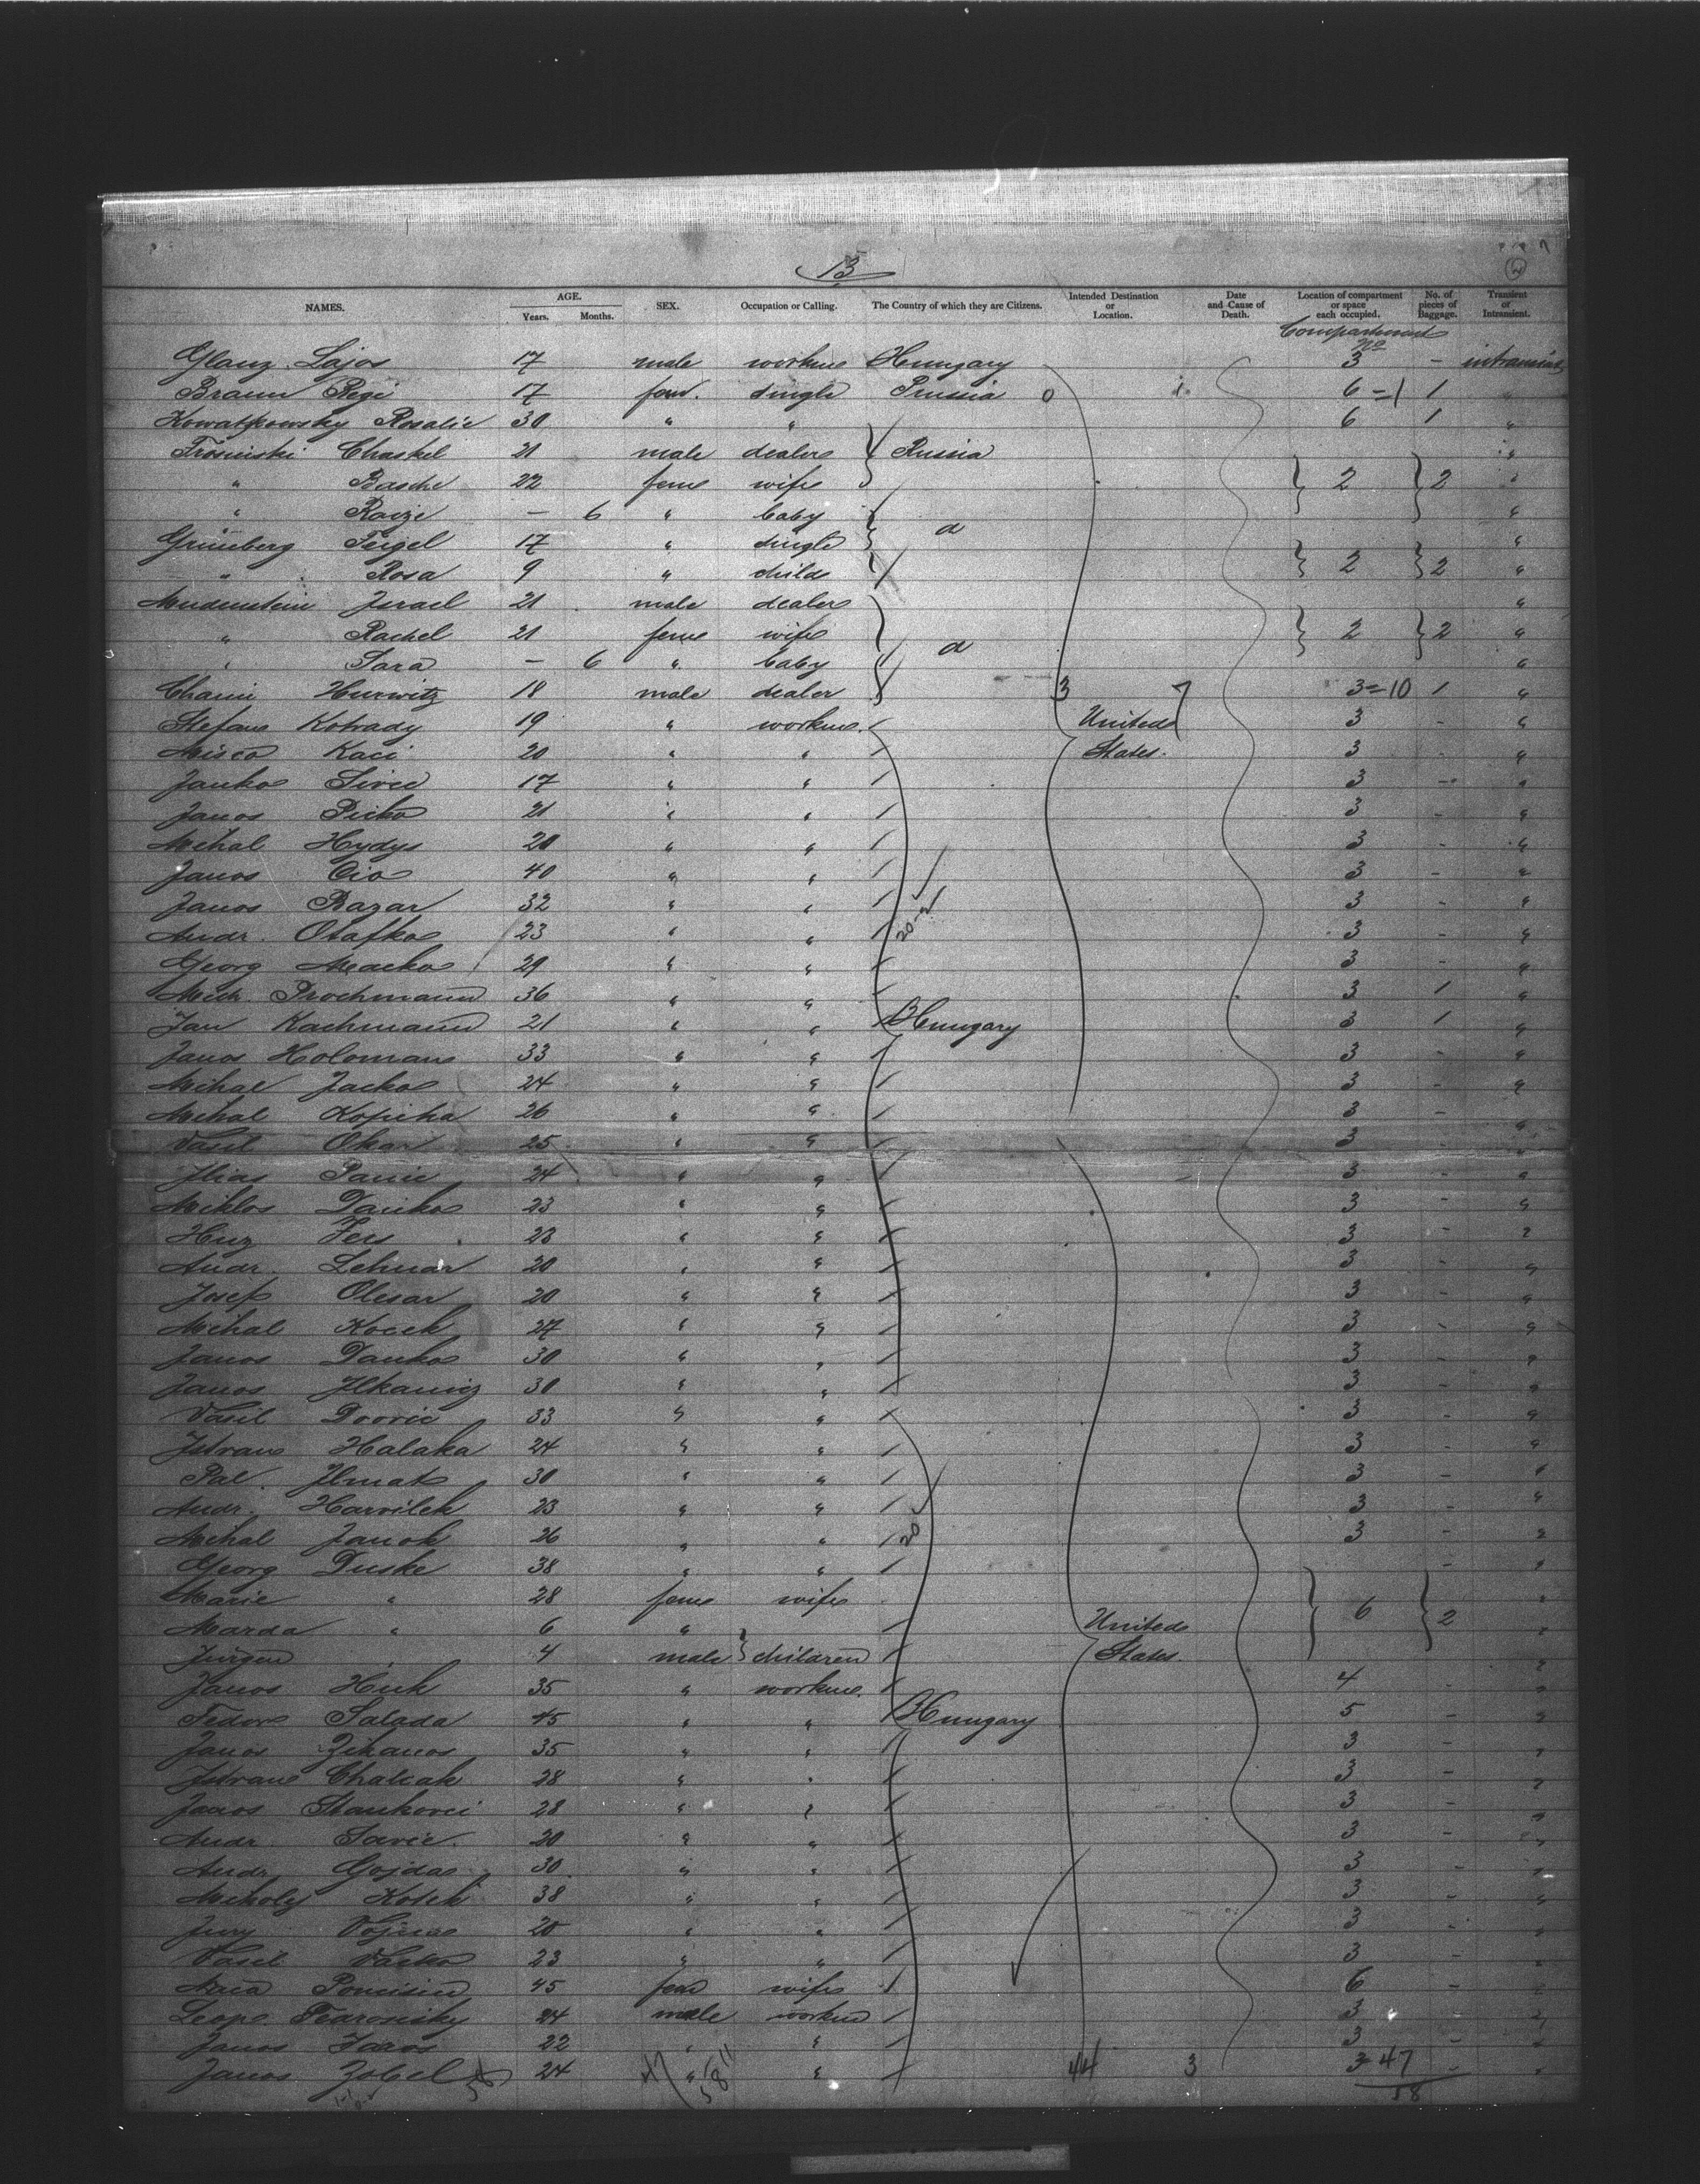 13
NAMES. AGE. Years. Months. SEX. Occupation or Calling. The Country of which they are Citizens. Intended Destination or Location. Date and Cause of Death. Location of compartment or space each occupied. No. of pieces of Baggage. Transient or Intransient.
Compartment No
Glanz Lajos 17 male workm Hungary 3 - intransient
Braun Regi 17 fem. single Prussia 0 6 =1 1 "
Kowalkowsky Rosalie 30 " " 6 1 "
Trosinski Chaskel 21 male dealer Russia "
" Basche 22 feme wife 2 2 "
" Raize - 6 " baby "
Grünberg Feigel 17 " single d "
" Rosa 9 " child 2 2 "
Mudenstein Israel 21 male dealer "
" Rachel 21 feme wife 2 2 "
" Sara - 6 " baby d "
Chaim Hurwitz 18 male dealer 3 7 3=10 1 "
Stefan Kohady 19 " workm. United 3 - "
Misco Kaci 20 " " States. 3 - "
Janko Sivec 17 " " 3 - "
Janos Picko 21 " " 3 - "
Mihal Hydys 20 " " 3 - "
Janos Cio 40 " " 3 - "
Janos Bazar 32 " " 3 - "
Andr. Otafko 23 " " 20-2 3 - "
Georg Macko 29 " " 3 - "
Mich. Prochmann 36 " " 3 1 "
Jan Kachmann 21 " " Hungary 3 1 "
Janos Holoman 33 " " 3 - "
Mihal Jacko 24 " " 3 - "
Mihal Kopicha 26 " " 3 - "
Vasil Okar 25 " " 3 - "
Ilias Panic 24 " " 3 - "
Miklos Danko 23 " " 3 - "
Huz Fers 23 " " 3 - "
Andr. Lehnar 20 " " 3 - "
Josef Olesar 20 " " 3 - "
Mihal Kocek 27 " " 3 - "
Janos Danko 30 " " 3 - "
Janos Ilkanicz 30 " " 3 - "
Vasil Dooric 33 " " 3 - "
Istvan Halaka 24 " " 3 - "
Pal. Ilmat 30 " " 3 - "
Andr. Harvilek 23 " " 3 - "
Mihal Janok 26 " " 20 3 - "
Georg Duske 38 " " - "
Marie " 28 feme wife 6 2 "
Marda " 6 " United "
Jürgen " 4 male children States. "
Janos Huk 35 " workm. 4 - "
Fedor Salada 45 " " Hungary 5 - "
Janos Zihanos 35 " " 3 - "
Istvan Chalcak 28 " " 3 - "
Janos Stankovci 28 " " 3 - "
Andr. Savic. 20 " " 3 - "
Andr. Gojda 30 " " 3 - "
Mikoly Kosch 38 " " 3 - "
Jury 20 " " 3 - "
Vasil Vasko 23 " " 3 - "
45 fem wife 6 - "
24 male workm 3 - "
Janos 22 " " 3 - "
Janos Zobel 24 " " 44 3 3 47 - "
58